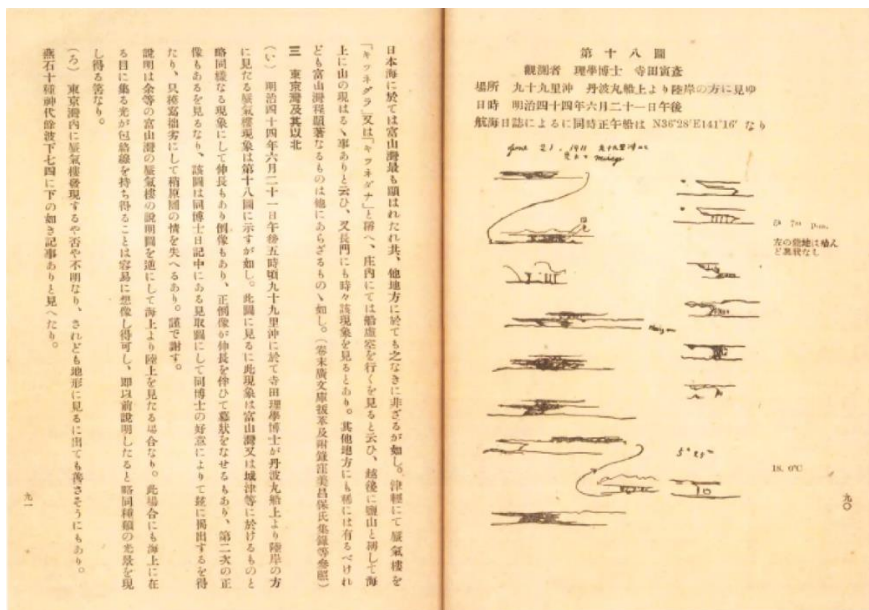 第十八圖
觀測者 理學博士 寺田寅彥
場所 九十九里沖 丹波丸船上より陸岸の方に見ゆ
日時 明治四十四年六月二十一日午後
航海日誌によるに同時正午船は N36°28′E141°16′ なり
June 21. 1911 九十九里沖にて
見たる Mirage
p.m.
左の陸地は殆んど異狀なし
5ʰ25ᵐ
18.0°C
九〇
日本海に於ては富山灣最も顯はれたれ共、他地方に於ても之なきに非ざるが如し。津輕にて蜃氣樓を
「キツネグラ」又は「キツネダナ」と稱へ、庄内にては船虛空を行くを見ると云ひ、越後に鹽山と稱して海
上に山の現はるゝ事ありと云ひ、又長門にも時々該現象を見るとあり。其他地方にも稀には有るべけれ
ども富山灣程顯著なるものは他にあらざるものゝ如し。(幕末廣文庫拔萃及附錄窪美昌保氏集錄等參照)
三 東京灣及其以北
(い) 明治四十四年六月二十一日午後五時頃九十九里沖に於て寺田理學博士が丹波丸船上より陸岸の方
に見たる蜃氣樓現象は第十八圖に示すが如し。此圖に見るに此現象は富山灣又は城津等に於けるものと
略同樣なる現象にして伸長もあり倒像もあり、正倒像が伸長を伴ひて幕狀をなせるもあり、第二次の正
像もあるを見るなり、該圖は同博士日記中にある見取圖にして同博士の好意によりて玆に揭出するを得
たり、只種寫拙劣にして稍原圖の情を失へるあり。謹で謝す。
說明は余等の富山灣の蜃氣樓の說明圖を逆にして海上より陸上を見たる場合なり。此場合にも海上に在
る目に集る光が包絡線を持ち得ることは容易に想像し得可し、卽以前說明したると略同種類の光景を現
し得る筈なり。
(ろ) 東京灣内に蜃氣樓發現するや否や不明なり、されども地形に見るに出ても善さそうにもあり。
燕石十種神代餘波下七四に下の如き記事ありと見へたり。
九一